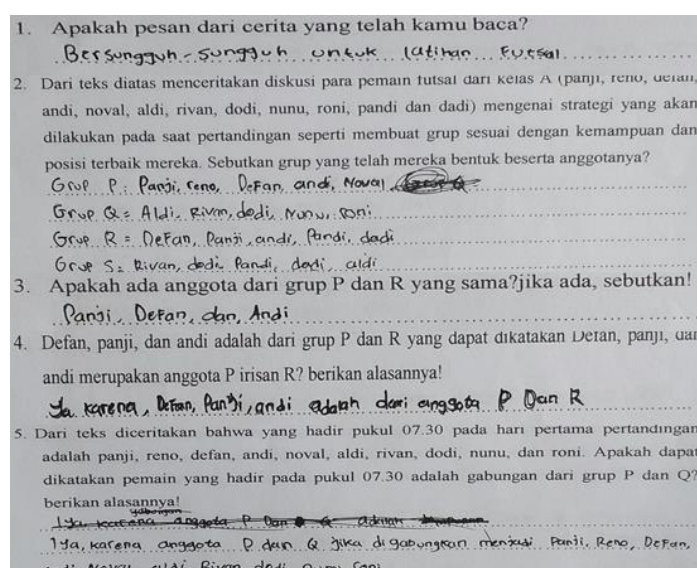 1. Apakah pesan dari cerita yang telah kamu baca?
Bersungguh-sungguh untuk latihan Futsal
2. Dari teks diatas menceritakan diskusi para pemain futsal dari kelas A (panji, reno, defan,
andi, noval, aldi, rivan, dodi, nunu, roni, pandi dan dadi) mengenai strategi yang akan
dilakukan pada saat pertandingan seperti membuat grup sesuai dengan kemampuan dan
posisi terbaik mereka. Sebutkan grup yang telah mereka bentuk beserta anggotanya?
Grup P: Panji, reno, Defan, andi, Noval
Grup Q= Aldi, Rivan, dodi, Nunu, roni
Grup R = Defan, Panji, andi, Pandi, dadi
Grup S= Rivan, dodi, Pandi, dadi, aldi
3. Apakah ada anggota dari grup P dan R yang sama?jika ada, sebutkan!
Panji, Defan, dan, Andi
4. Defan, panji, dan andi adalah dari grup P dan R yang dapat dikatakan Defan, panji, dan
andi merupakan anggota P irisan R? berikan alasannya!
Ya karena, Defan, Panji, andi adalah dari anggota P Dan R
5. Dari teks diceritakan bahwa yang hadir pukul 07.30 pada hari pertama pertandingan
adalah panji, reno, defan, andi, noval, aldi, rivan, dodi, nunu, dan roni. Apakah dapat
dikatakan pemain yang hadir pada pukul 07.30 adalah gabungan dari grup P dan Q?
berikan alasannya!
gabungan
Iya karena anggota P Dan Q adalah
Iya, karena anggota P dan Q jika digabungkan menjadi Panji, Reno, Defan,
aldi Rivan dodi roni